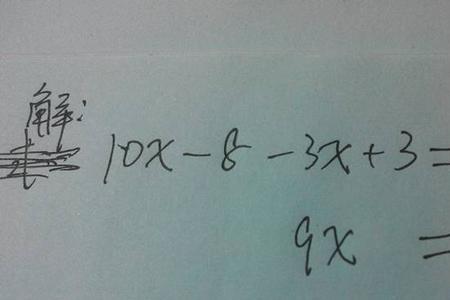 解:
10x-8-3x+3=
9x =